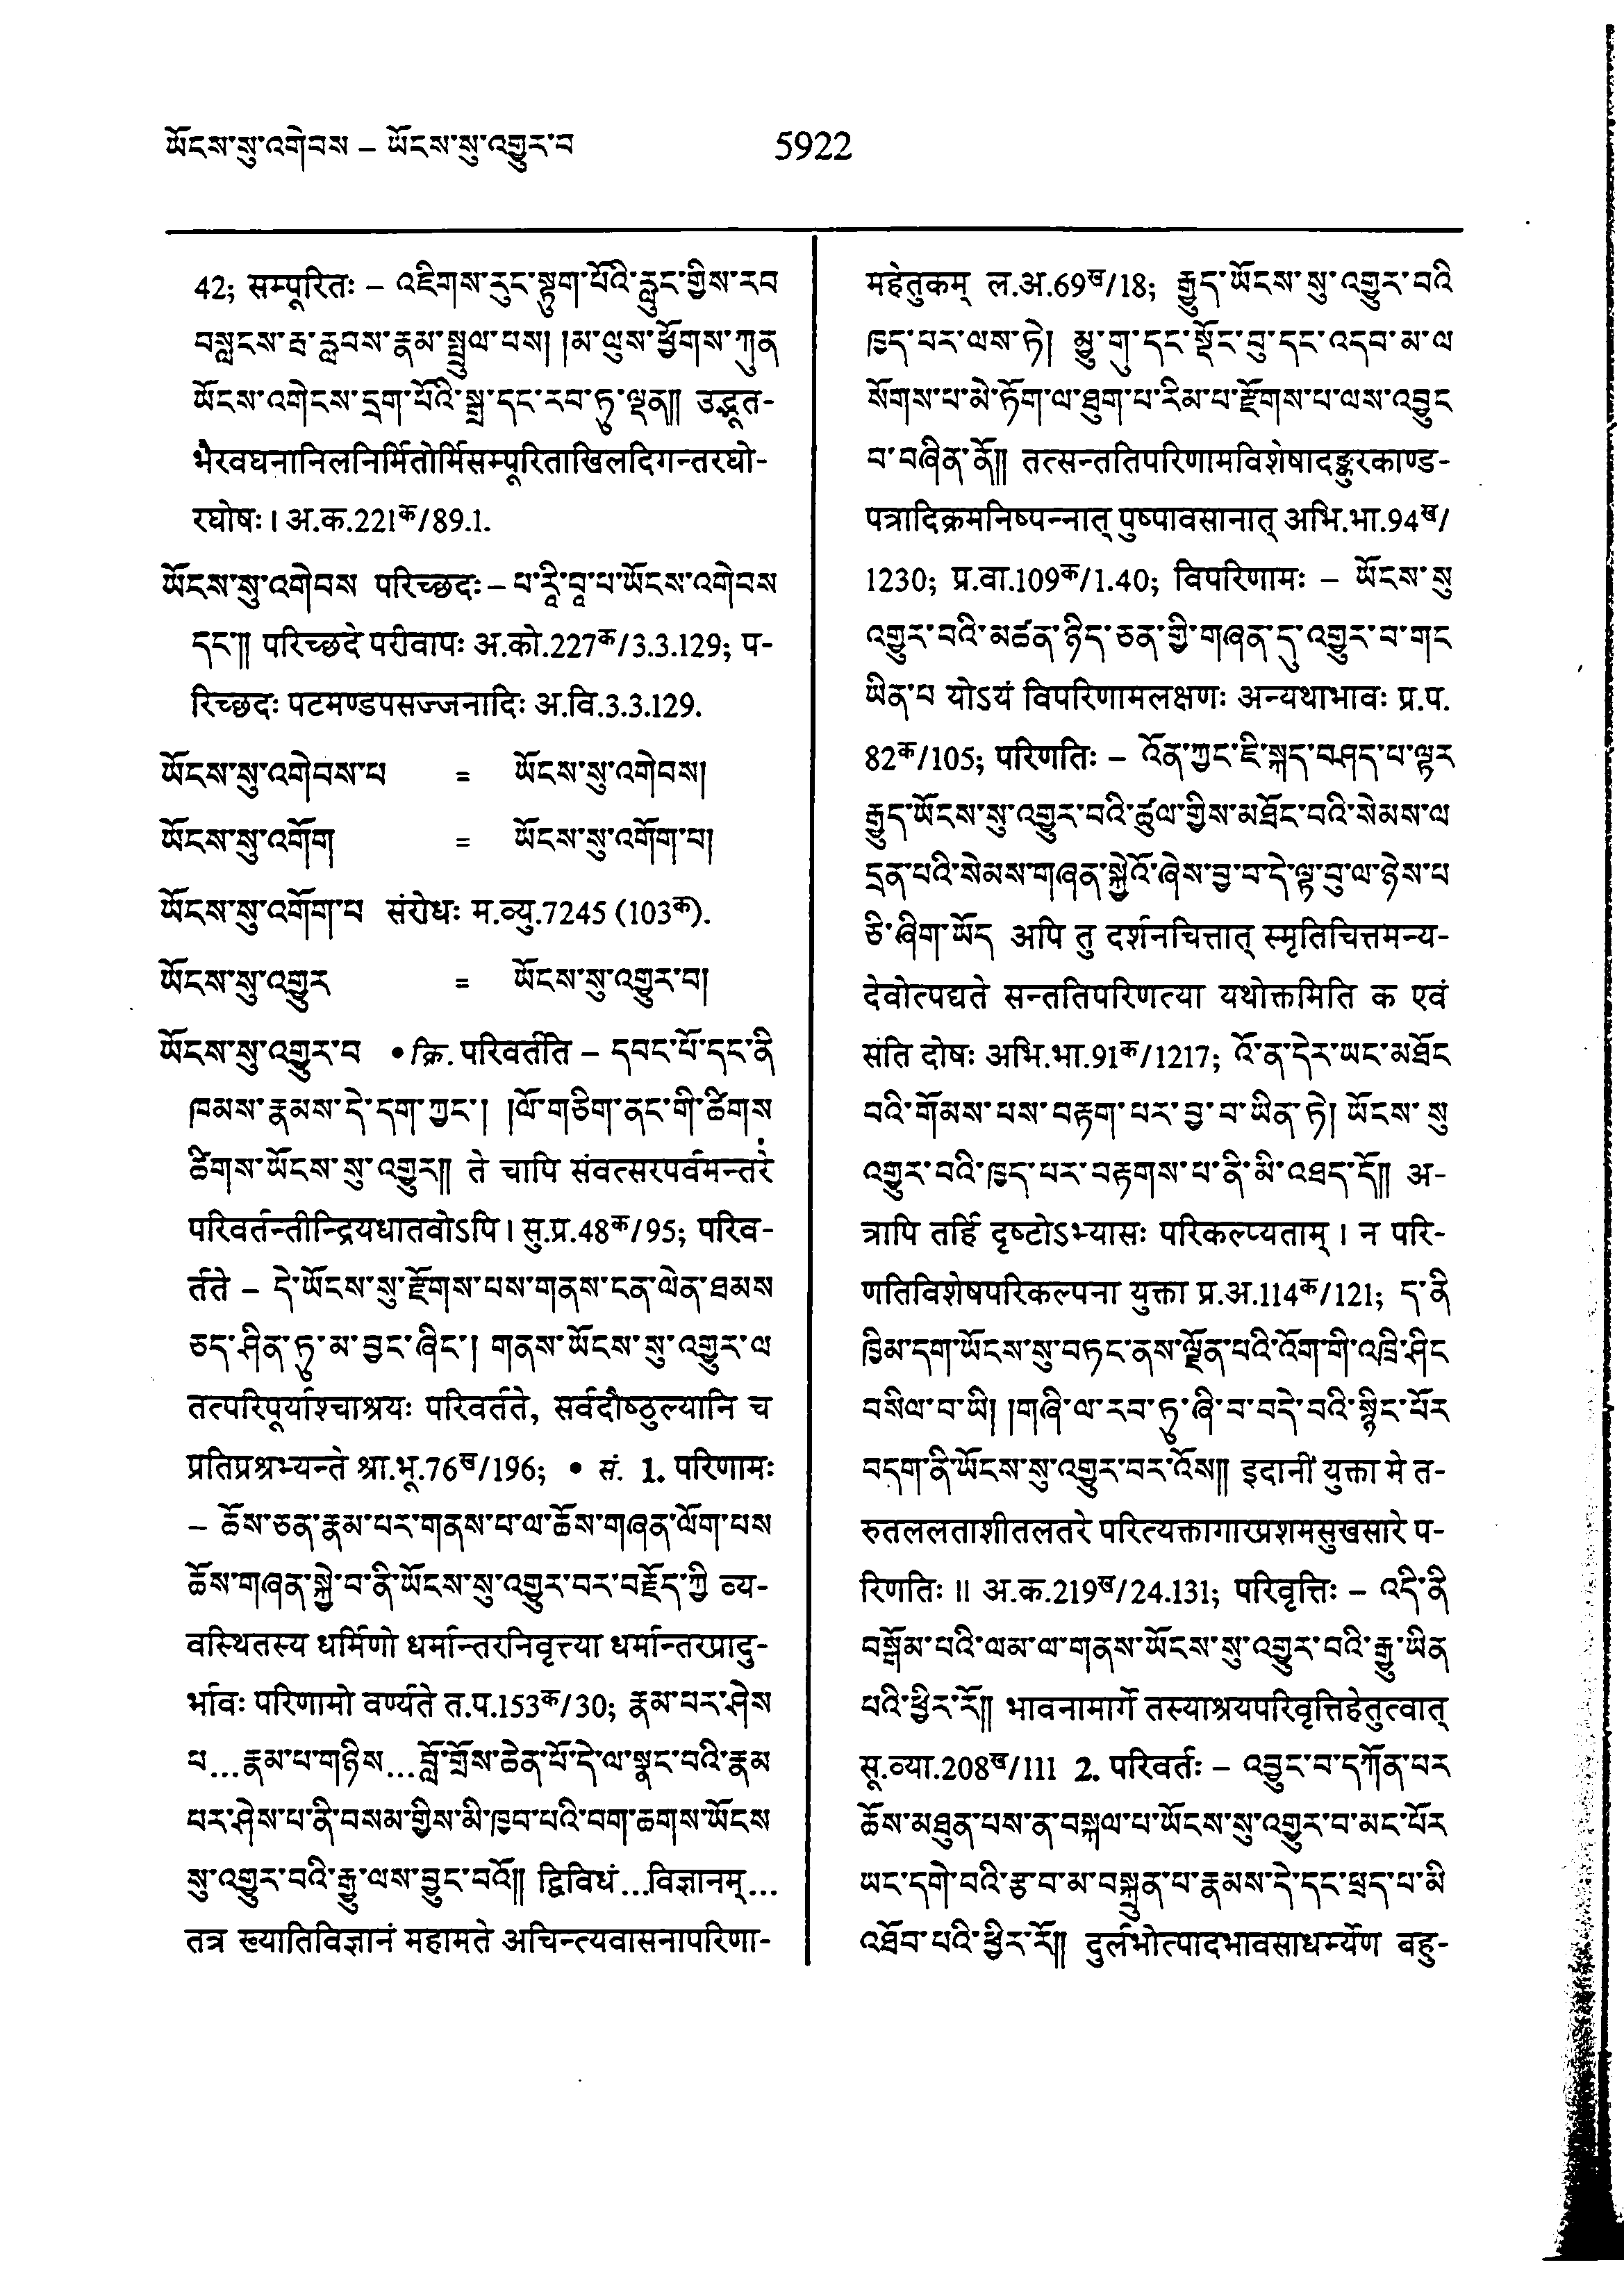 ཡོངས་སུ་འགེབས – ཡོངས་སུ་འགྱུར་བ
5922
42; सम्पूरितः – འཇིགས་རུང་སྟུག་པོའི་རླུང་གྱིས་རབ
བསླངས་རྦ་རླབས་རྣམ་སྤྲུལ་པས། །མ་ལུས་ཕྱོགས་ཀུན
ཡོངས་འགེངས་དྲག་པོའི་སྒྲ་དང་རབ་ཏུ་ལྡན༎ उद्भूत-
भैरवघनानिलनिर्मितोर्मिसम्पूरिताखिलदिगन्तरघो-
रघोषः । अ.क.221क/89.1.
ཡོངས་སུ་འགེབས परिच्छदः – པ་རཱི་བཱ་པ་ཡོངས་འགེབས
དང་༎ परिच्छदे परीवापः अ.को.227क/3.3.129; प-
रिच्छदः पटमण्डपसज्जनादिः अ.वि.3.3.129.
ཡོངས་སུ་འགེབས་པ = ཡོངས་སུ་འགེབས།
ཡོངས་སུ་འགོག = ཡོངས་སུ་འགོག་པ།
ཡོངས་སུ་འགོག་པ संरोधः म.व्यु.7245 (103क).
ཡོངས་སུ་འགྱུར = ཡོངས་སུ་འགྱུར་བ།
ཡོངས་སུ་འགྱུར་བ • क्रि. परिवर्तति – དབང་པོ་དང་ནི
ཁམས་རྣམས་དེ་དག་ཀྱང་། །ལོ་གཅིག་ནང་གི་ཚིགས
ཚིགས་ཡོངས་སུ་འགྱུར༎ ते चापि संवत्सरपर्वमन्तरे
परिवर्तन्तीन्द्रियधातवोऽपि । सु.प्र.48क/95; परिव-
र्तते – དེ་ཡོངས་སུ་རྫོགས་པས་གནས་ངན་ལེན་ཐམས
ཅད་ཤིན་ཏུ་མ་བྱང་ཞིང་། གནས་ཡོངས་སུ་འགྱུར་ལ
तत्परिपूर्याश्चाश्रयः परिवर्तते, सर्वदौष्ठुल्यानि च
प्रतिप्रश्रभ्यन्ते श्रा.भू.76ख/196; • सं. 1. परिणामः
– ཆོས་ཅན་རྣམ་པར་གནས་པ་ལ་ཆོས་གཞན་ལོག་པས
ཆོས་གཞན་སྐྱེ་བ་ནི་ཡོངས་སུ་འགྱུར་བར་བརྗོད་ཀྱི व्य-
वस्थितस्य धर्मिणो धर्मान्तरनिवृत्त्या धर्मान्तरप्रादु-
र्भावः परिणामो वर्ण्यते त.प.153क/30; རྣམ་པར་ཤེས
པ...རྣམ་པ་གཉིས...བློ་གྲོས་ཆེན་པོ་དེ་ལ་སྣང་བའི་རྣམ
པར་ཤེས་པ་ནི་བསམ་གྱིས་མི་ཁྱབ་པའི་བག་ཆགས་ཡོངས
སུ་འགྱུར་བའི་རྒྱུ་ལས་བྱུང་བའོ༎ द्विविधं...विज्ञानम्...
तत्र ख्यातिविज्ञानं महामते अचिन्त्यवासनापरिणा-
महेतुकम् ल.अ.69ख/18; རྒྱུད་ཡོངས་སུ་འགྱུར་བའི
ཁྱད་པར་ལས་ཏེ། མྱུ་གུ་དང་སྡོང་བུ་དང་འདབ་མ་ལ
སོགས་པ་མེ་ཏོག་ལ་ཐུག་པ་རིམ་པ་རྫོགས་པ་ལས་འབྱུང
བ་བཞིན་ནོ༎ तत्सन्ततिपरिणामविशेषादङ्कुरकाण्ड-
पत्रादिक्रमनिष्पन्नात् पुष्पावसानात् अभि.भा.94ख/
1230; प्र.वा.109क/1.40; विपरिणामः – ཡོངས་སུ
འགྱུར་བའི་མཚན་ཉིད་ཅན་གྱི་གཞན་དུ་འགྱུར་བ་གང
ཡིན་པ योऽयं विपरिणामलक्षणः अन्यथाभावः प्र.प.
82क/105; परिणतिः – འོན་ཀྱང་ཇི་སྐད་བཤད་པ་ལྟར
རྒྱུད་ཡོངས་སུ་འགྱུར་བའི་ཚུལ་གྱིས་མཐོང་བའི་སེམས་ལ
དྲན་པའི་སེམས་གཞན་སྐྱེའོ་ཞེས་བྱ་བ་དེ་ལྟ་བུ་ལ་ཉེས་པ
ཅི་ཞིག་ཡོད अपि तु दर्शनचित्तात् स्मृतिचित्तमन्य-
देवोत्पद्यते सन्ततिपरिणत्या यथोक्तमिति क एवं
सति दोषः अभि.भा.91क/1217; འོ་ན་དེར་ཡང་མཐོང
བའི་གོམས་པས་བརྟག་པར་བྱ་བ་ཡིན་ཏེ། ཡོངས་སུ
འགྱུར་བའི་ཁྱད་པར་བརྟགས་པ་ནི་མི་འཐད་དོ༎ अ-
त्रापि तर्हि दृष्टोऽभ्यासः परिकल्प्यताम् । न परि-
णतिविशेषपरिकल्पना युक्ता प्र.अ.114क/121; ད་ནི
ཁྱིམ་དག་ཡོངས་སུ་བཏང་ནས་ལྗོན་པའི་འོག་གི་འཁྲི་ཤིང
བསིལ་བ་ཡི། །གཞི་ལ་རབ་ཏུ་ཞི་བ་བདེ་བའི་སྙིང་པོར
བདག་ནི་ཡོངས་སུ་འགྱུར་བར་འོས༎ इदानीं युक्ता मे त-
रुतललताशीतलतरे परित्यक्तागारप्रशमसुखसारे प-
रिणतिः ॥ अ.क.219ख/24.131; परिवृत्तिः – འདི་ནི
བསྒོམ་པའི་ལམ་ལ་གནས་ཡོངས་སུ་འགྱུར་བའི་རྒྱུ་ཡིན
པའི་ཕྱིར་རོ༎ भावनामार्गे तस्याश्रयपरिवृत्तिहेतुत्वात्
सू.व्या.208ख/111 2. परिवर्तः – འབྱུང་བ་དཀོན་པར
ཆོས་མཐུན་པས་ན་བསྐལ་པ་ཡོངས་སུ་འགྱུར་བ་མང་པོར
ཡང་དགེ་བའི་རྩ་བ་མ་བསྐྲུན་པ་རྣམས་དེ་དང་ཕྲད་པ་མི
འཐོབ་པའི་ཕྱིར་རོ༎ दुर्लभोत्पादभावसाधर्म्येण बहु-